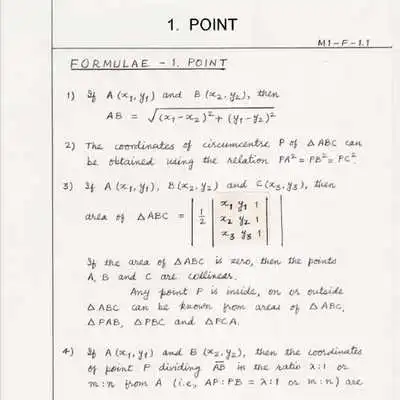 1. POINT
M1-F-1.1
FORMULAE - 1. POINT
1) If A (x₁, y₁) and B (x₂, y₂), then
AB = √(x₁-x₂)² + (y₁-y₂)²
2) The coordinates of circumcentre P of △ ABC can
be obtained using the relation PA² = PB² = PC².
3) If A (x₁, y₁), B(x₂, y₂) and C(x₃, y₃), then
area of △ ABC = | 1/2 | x₁ y₁ 1 | |
x₂ y₂ 1
x₃ y₃ 1
If the area of △ ABC is zero, then the points
A, B and C are collinear.
Any point P is inside, on or outside
△ ABC can be known from areas of △ ABC,
△ PAB, △ PBC and △ PCA.
4) If A (x₁, y₁) and B (x₂, y₂), then the coordinates
of point P dividing AB in the ratio λ:1 or
m:n from A (i.e., AP:PB = λ:1 or m:n) are